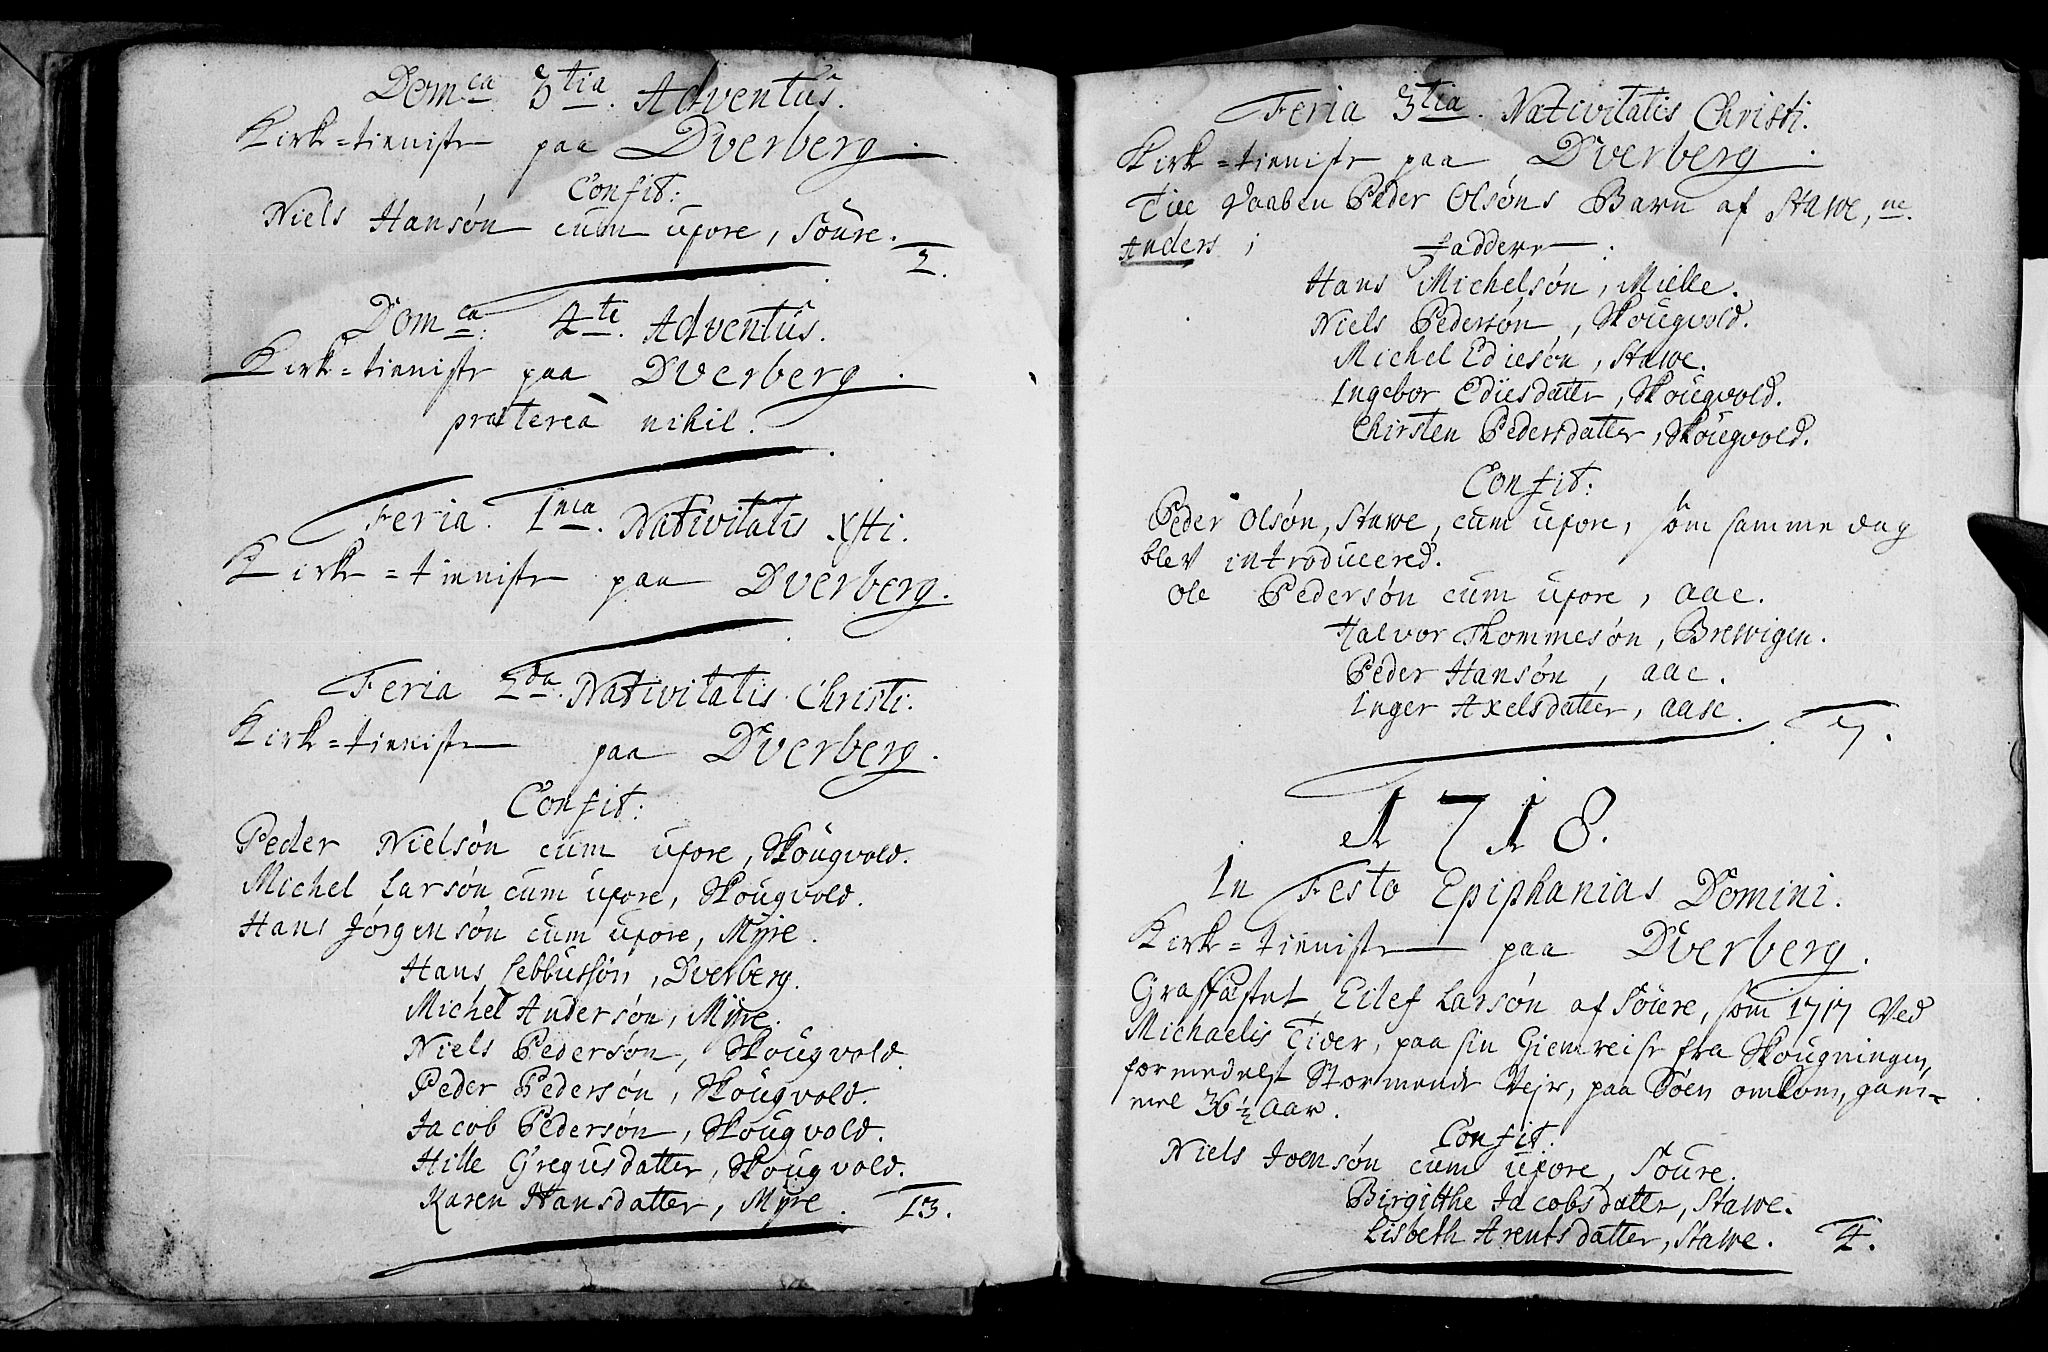 Domca 3tia. Adventûs.
Kirk=tieniste paa Dverberg.
Confit:
Niels Hansøn cum uxore, Söure.
2.
Domca. 4te. Adventûs.
Kirk=tieniste paa Dverberg.
prætereà nihil.
Feria 1ma. Nativitatis Xsti.
Kirk=tieniste paa Dverberg.
Feria 2da. Nativitatis Christi.
Kirk=tieniste paa Dverberg.
Confit:
Peder Nielsøn cum uxore, Skougvold.
Michel Larsøn cum uxore, Skougvold.
Hans Jørgensøn cum uxore, Myre.
Hans Sebbussøn, Dverberg.
Michel Andersøn, Myre.
Niels Pedersøn, Skougvold.
Peder Pedersøn, Skougvold.
Jacob Pedersøn, Skougvold.
Hille Gregusdatter, Skougvold.
Karen Hansdatter, Myre. 13.
Feria 3tia. Nativitatis Christi.
Kirk=tieniste paa Dverberg.
Peder Olsøns Barn af Stawe, ne.
Anders;
Faddere.
Hans Michelsøn, Mielle.
Niels Pedersøn, Skougvold.
Michel Ediesøn, Stawe.
Ingebor Ediesdatter, Skougvold.
Chirsten Pedersdatter, Skougvold.
Confit:
Peder Olsøn, Stawe, cum uxore, som samme dag
blev introducered.
Ole Pedersøn cum uxore, Aae.
Halvor Thommesøn, Brewigen.
Peder Hansøn, Aae.
Inger Axelsdatter, Aase.
7.
1718.
In Festo Epiphanias Domini.
Kirk=tieniste paa Dverberg.
Grasfæstet Eilef Larsøn af Söure, som 1717 Ved
Michaelis Tider, paa sin Giemreise fra Skougningen,
formedelst Stormende Vejr, paa Søen omkom, gam-
mel 36 1/2 Aar.
Confit:
Niels Joensøn cum uxore, Söure.
Birgitthe Jacobsdatter, Stawe.
Lisbeth Arentsdatter, Stawe. 4.